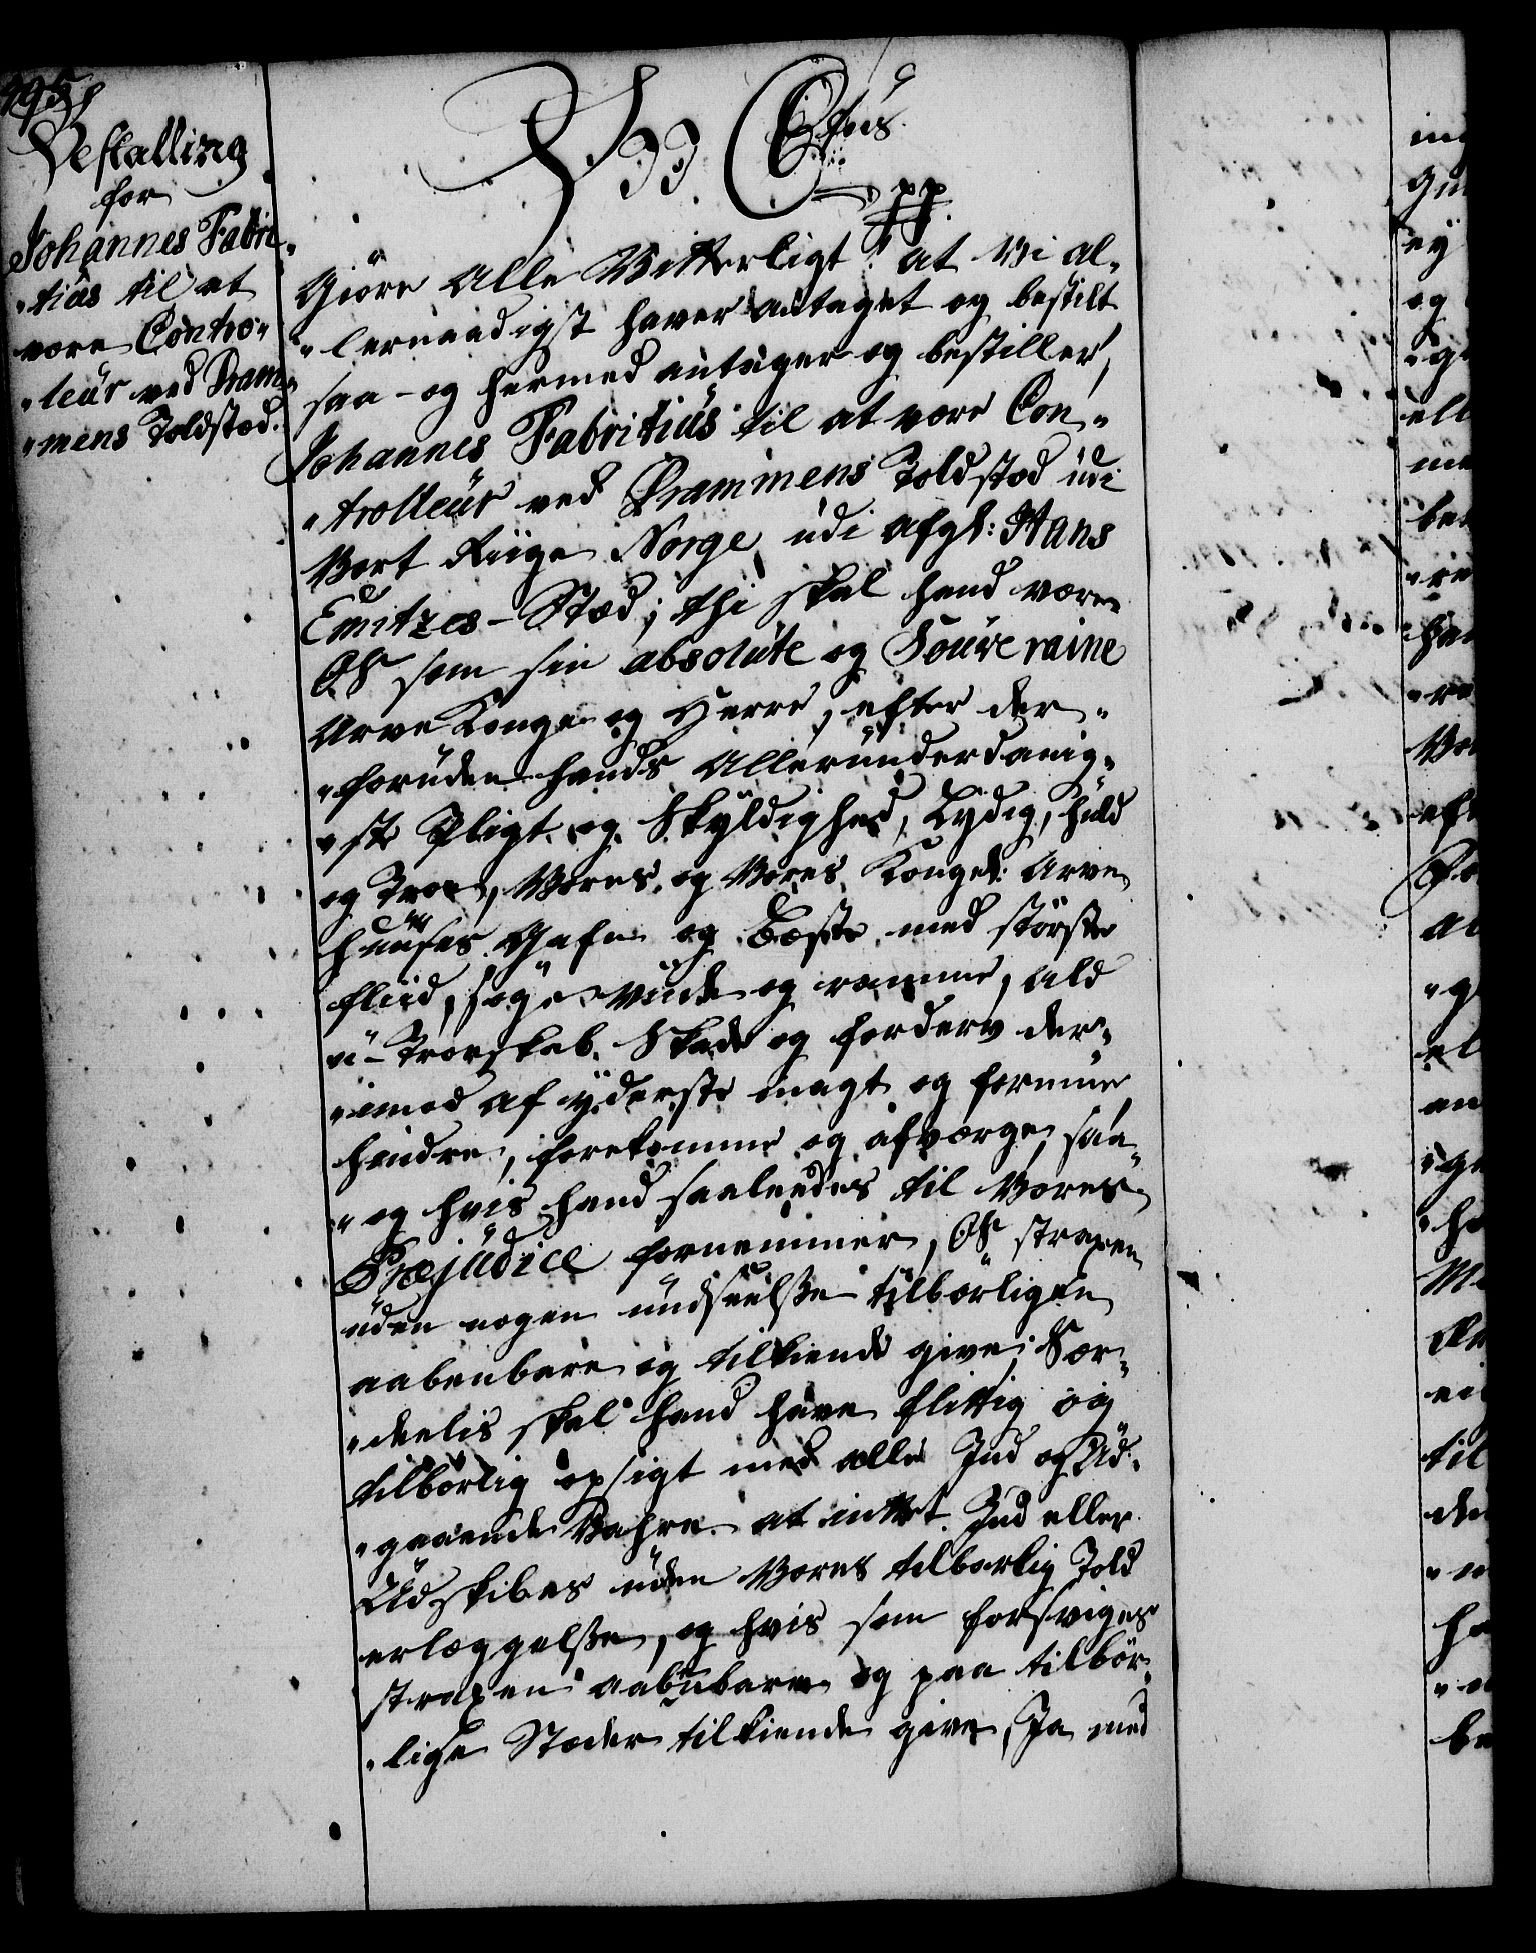 495
Bestalling
for
Johannes Fabri„
„tius til at
være Contro„
„leur ved Dram„
„mens Toldstæd.
Vi C 6tus
pp
Giöre Alle Vitterligt: at Vi al„
„lernaadigst haver antaget og bestilt
saa - og hermed antager og bestiller,
Johannes Fabritius til at være Con„
„trolleur ved Drammens Toldstæd udi
Vort Riige Norge, udi afgl: Hans
Emitzes - Stæd; thi skal hand være
Os som sin absolute og Souveraine
Arve Konge og Herre, efter der„
„foruden hands Allerunderdanig„
„ste Pligt og Skyldighed, Lydig, huld
og Troe, Vores og Vores Kongel: Arve
Huuses Gafn og Bæste med störste
fliid, söge vide og ramme, ald
u-Troeskab, Skade og forderv der„
„imod af yderste magt og formue
hindre, forekomme og afværge, saa„
„og hvis hand saaleedes til Vores
Præjudice fornemmer, Os straxen
uden nogen undseelsse tilbörligen
aabenbare og tilkiende give; Sær„
„deelis skal hand have flittig og
tilbörlig opsigt med alle Ind og Ud„
„gaaende Vahre at intet Ind eller
Udskibes uden Vores tilbörlig Told
erlæggelsse, og hvis som forsviges
straxen aabenbare og paa tilbör„
„lige Stæder tilkiende give, Ja med